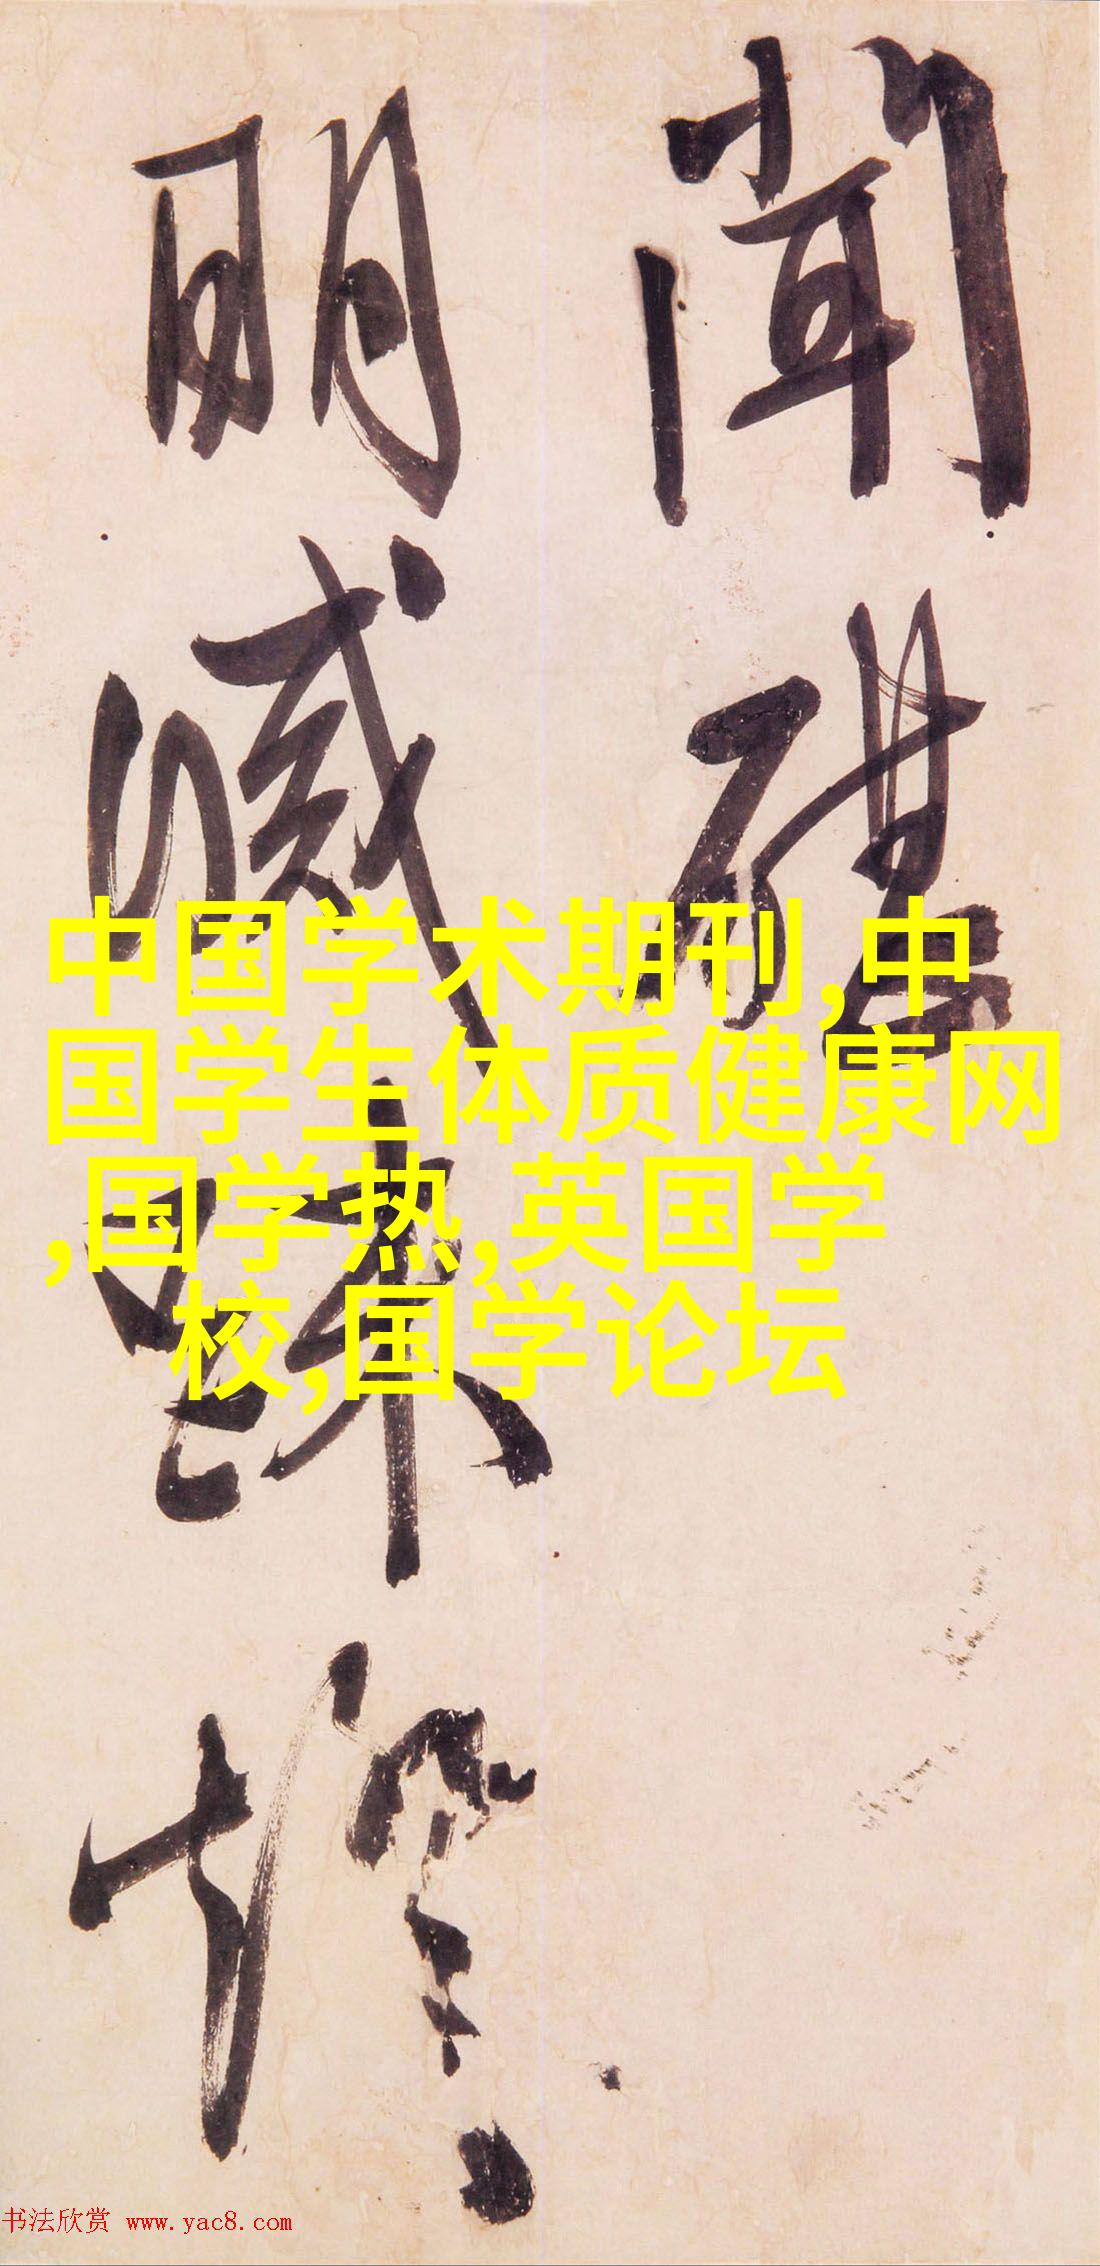 聞礎
明誠
中国学术期刊,中
国学生体质健康网
,国学热,英国学
校,国学论坛
书法欣赏 www.yac8.com